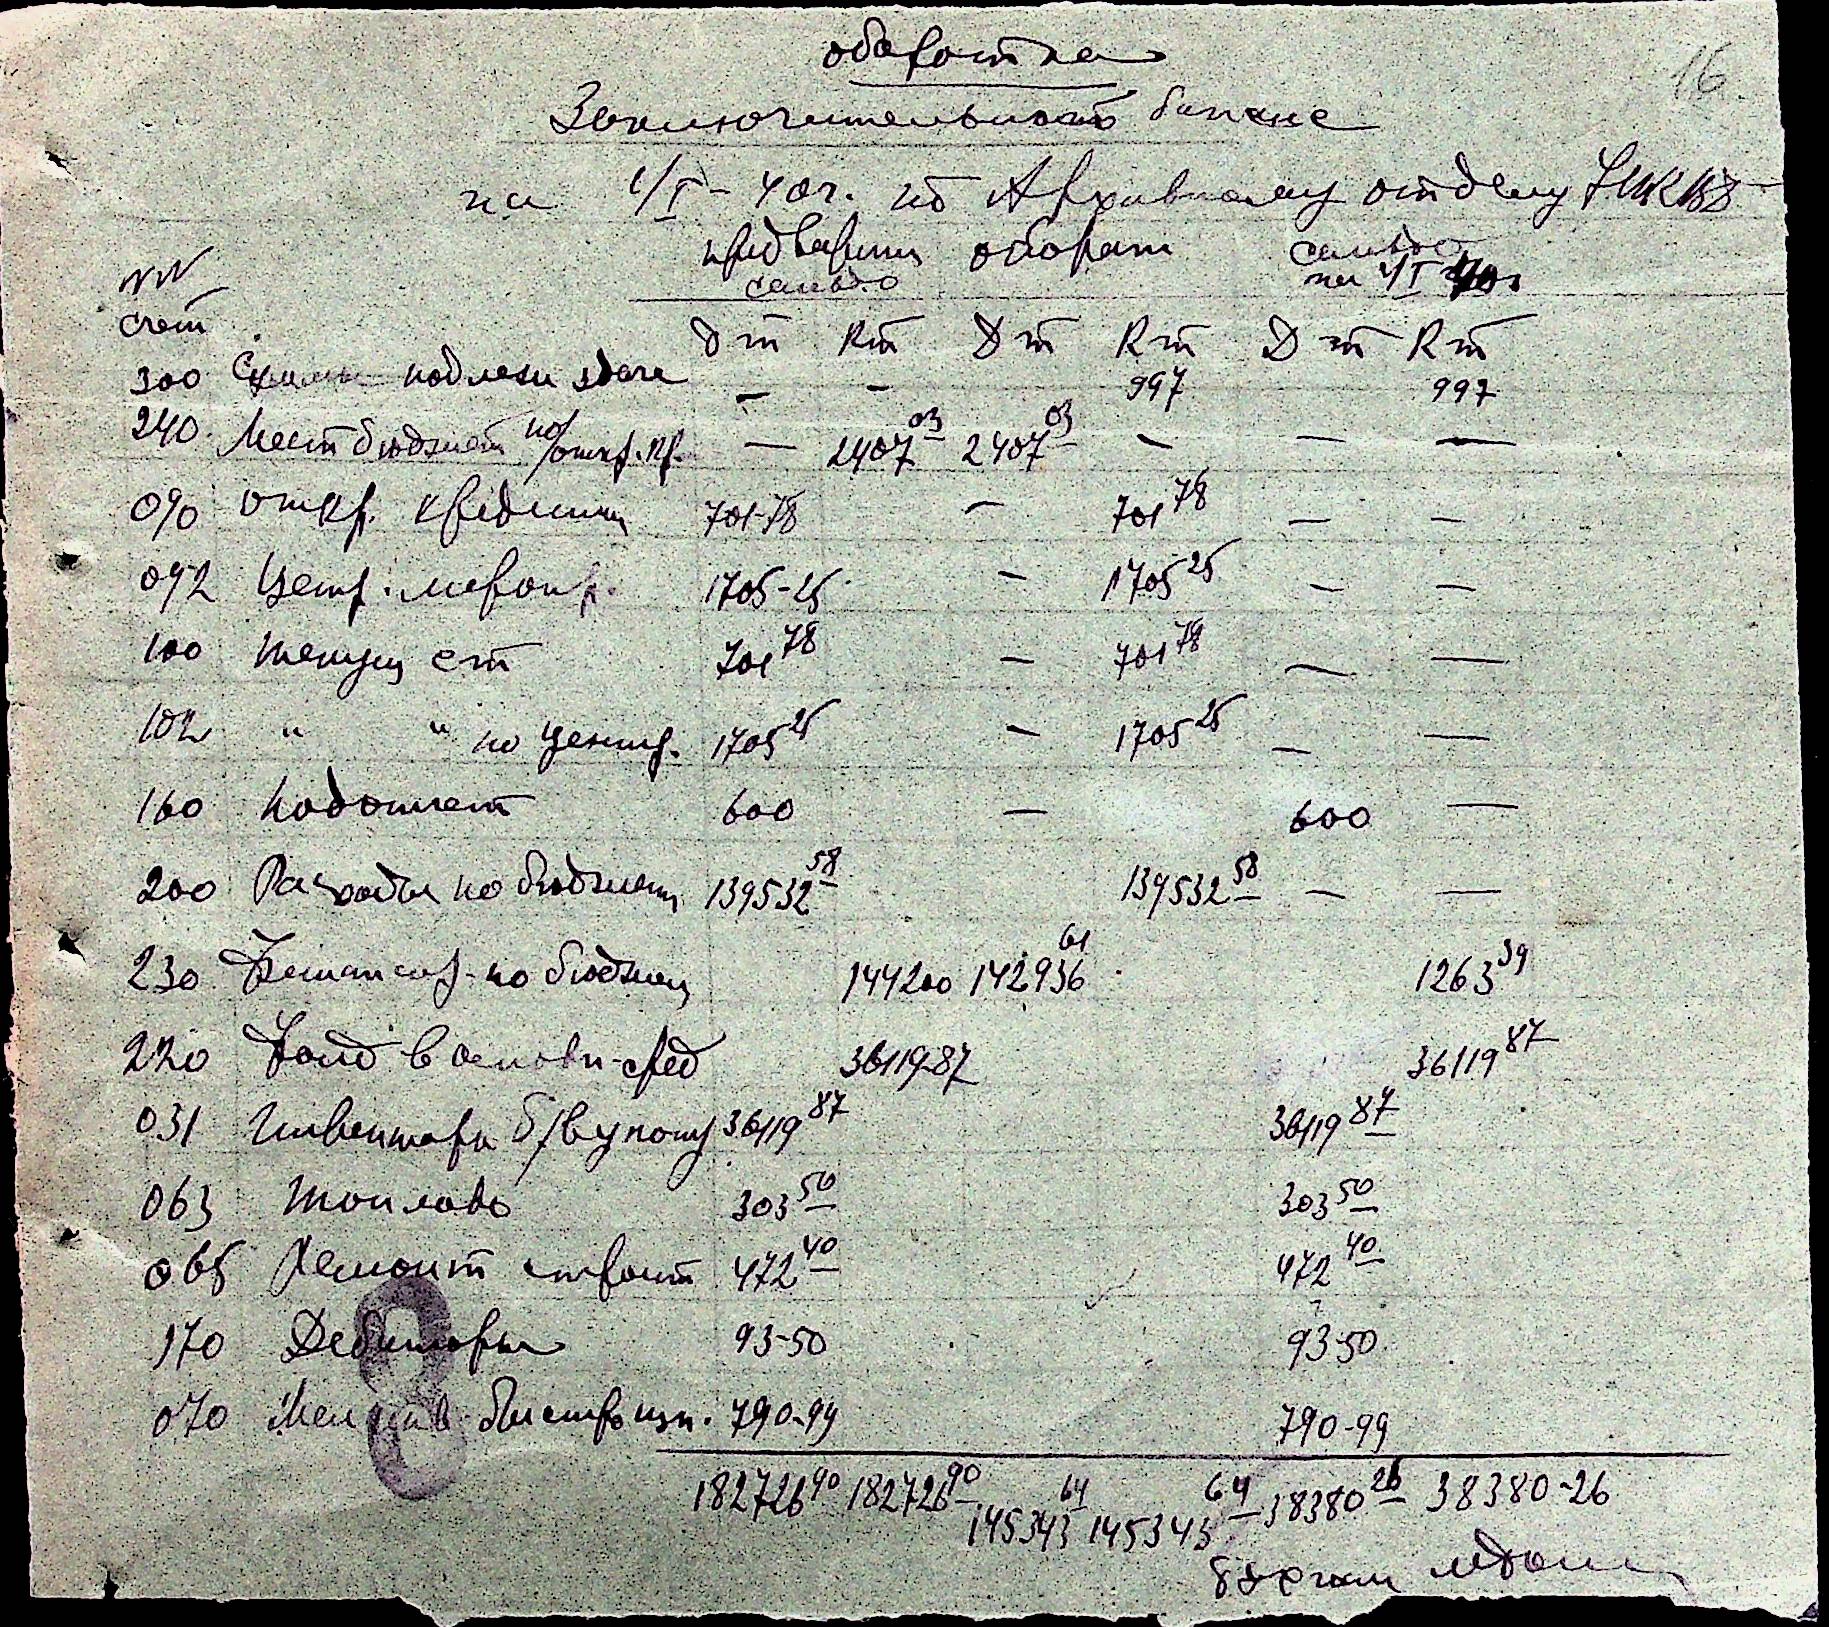 16
оборотка
Заключительный баланс
на 1/I – 40 г. по Архивному отделу УНКВД
NN счет
предварит сальдо оборот сальдо на 1/I 40 г
Дт Кт Дт Кт Дт Кт
300 Суммы подлежи сдаче — - 997 997
240. Мест бюджет по/откр. кр. — 2407 03 2407 03 — — —
090 откр. кредиты 701-78 — 701 78 — —
092 Центр. меропр. 1705-25 — 1705 25 — —
100 текущ ст 701 78 — 701 78 — —
102 " " по центр. 1705 25 — 1705 25 — —
160 Подотчет 600 — 600 —
200 Расходы по бюджету 139532 58 139532 58 — —
230 Финансир. по бюджету 144200 142936 61 1263 39
220 Фонд в основн. сред 36119-87 36119 87
031 Инвентарь б/в упот 36119 87 36119 87
063 топливо 303 50 303 50
065 Ремонт строит 472 40 472 40
170 Дебиторы 93-50 93-50
070 790-99 790-99
182726 90 182726 90 145343 64 145343 64 38380 26 38380-26
бухгалт